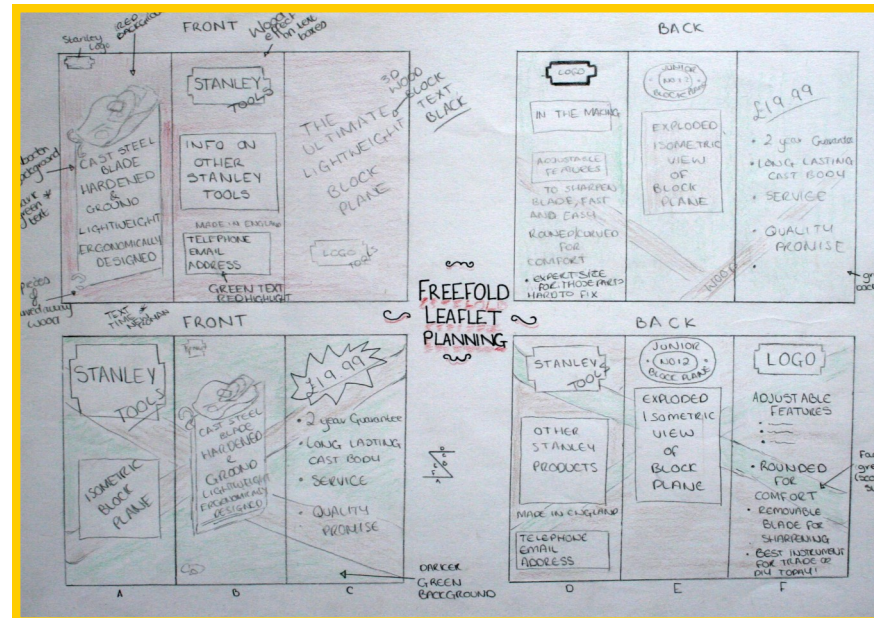 FRONT
Stanley Logo
RED BACKGROUND
Wood effect on text boxes
CAST STEEL
BLADE
HARDENED
&
GROUND
LIGHTWEIGHT
ERGONOMICALLY
DESIGNED
background
green
text
pieces
of
wood
STANLEY
TOOLS
INFO ON
OTHER
STANLEY
TOOLS
MADE IN ENGLAND
TELEPHONE
EMAIL
ADDRESS
GREEN TEXT
RED HIGHLIGHT
TEXT
TIME NEW ROMAN
THE
ULTIMATE
LIGHTWEIGHT
BLOCK
PLANE
LOGO
TOOLS
3D
WOOD
BLOCK
TEXT
BLACK
BACK
LOGO
IN THE MAKING
ADJUSTABLE
FEATURES
TO SHARPEN
BLADE, FAST
AND EASY
ROUNED/CURVED
FOR
COMFORT
• EXPERT SIZE
FOR THOSE PARTS
HARD TO FIX
JUNIOR
NO12
BLOCK PLANE
EXPLODED
ISOMETRIC
VIEW
OF
BLOCK
PLANE
WOOD
£19.99
• 2 year Guarantee
• LONG LASTING
CAST BODY
• SERVICE
• QUALITY
PROMISE
•
FREEFOLD
LEAFLET
PLANNING
FRONT
STANLEY
TOOLS
ISOMETRIC
BLOCK
PLANE
CAST STEEL
BLADE
HARDENED
&
GROUND
LIGHTWEIGHT
ERGONOMICALLY
DESIGNED
£19.99
• 2 year Guarantee
• LONG LASTING
CAST BODY
• SERVICE
• QUALITY
PROMISE
A B C
DARKER
GREEN
BACKGROUND
BACK
STANLEY
TOOLS
OTHER
STANLEY
PRODUCTS
MADE IN ENGLAND
TELEPHONE
EMAIL
ADDRESS
JUNIOR
• NO12 •
BLOCK PLANE
EXPLODED
ISOMETRIC
VIEW
OF
BLOCK
PLANE
LOGO
ADJUSTABLE
FEATURES
• ROUNDED
FOR
COMFORT
• REMOVABLE
BLADE FOR
SHARPENING
• BEST INSTRUMENT
FOR TRADE OR
DIY TODAY!
D E F